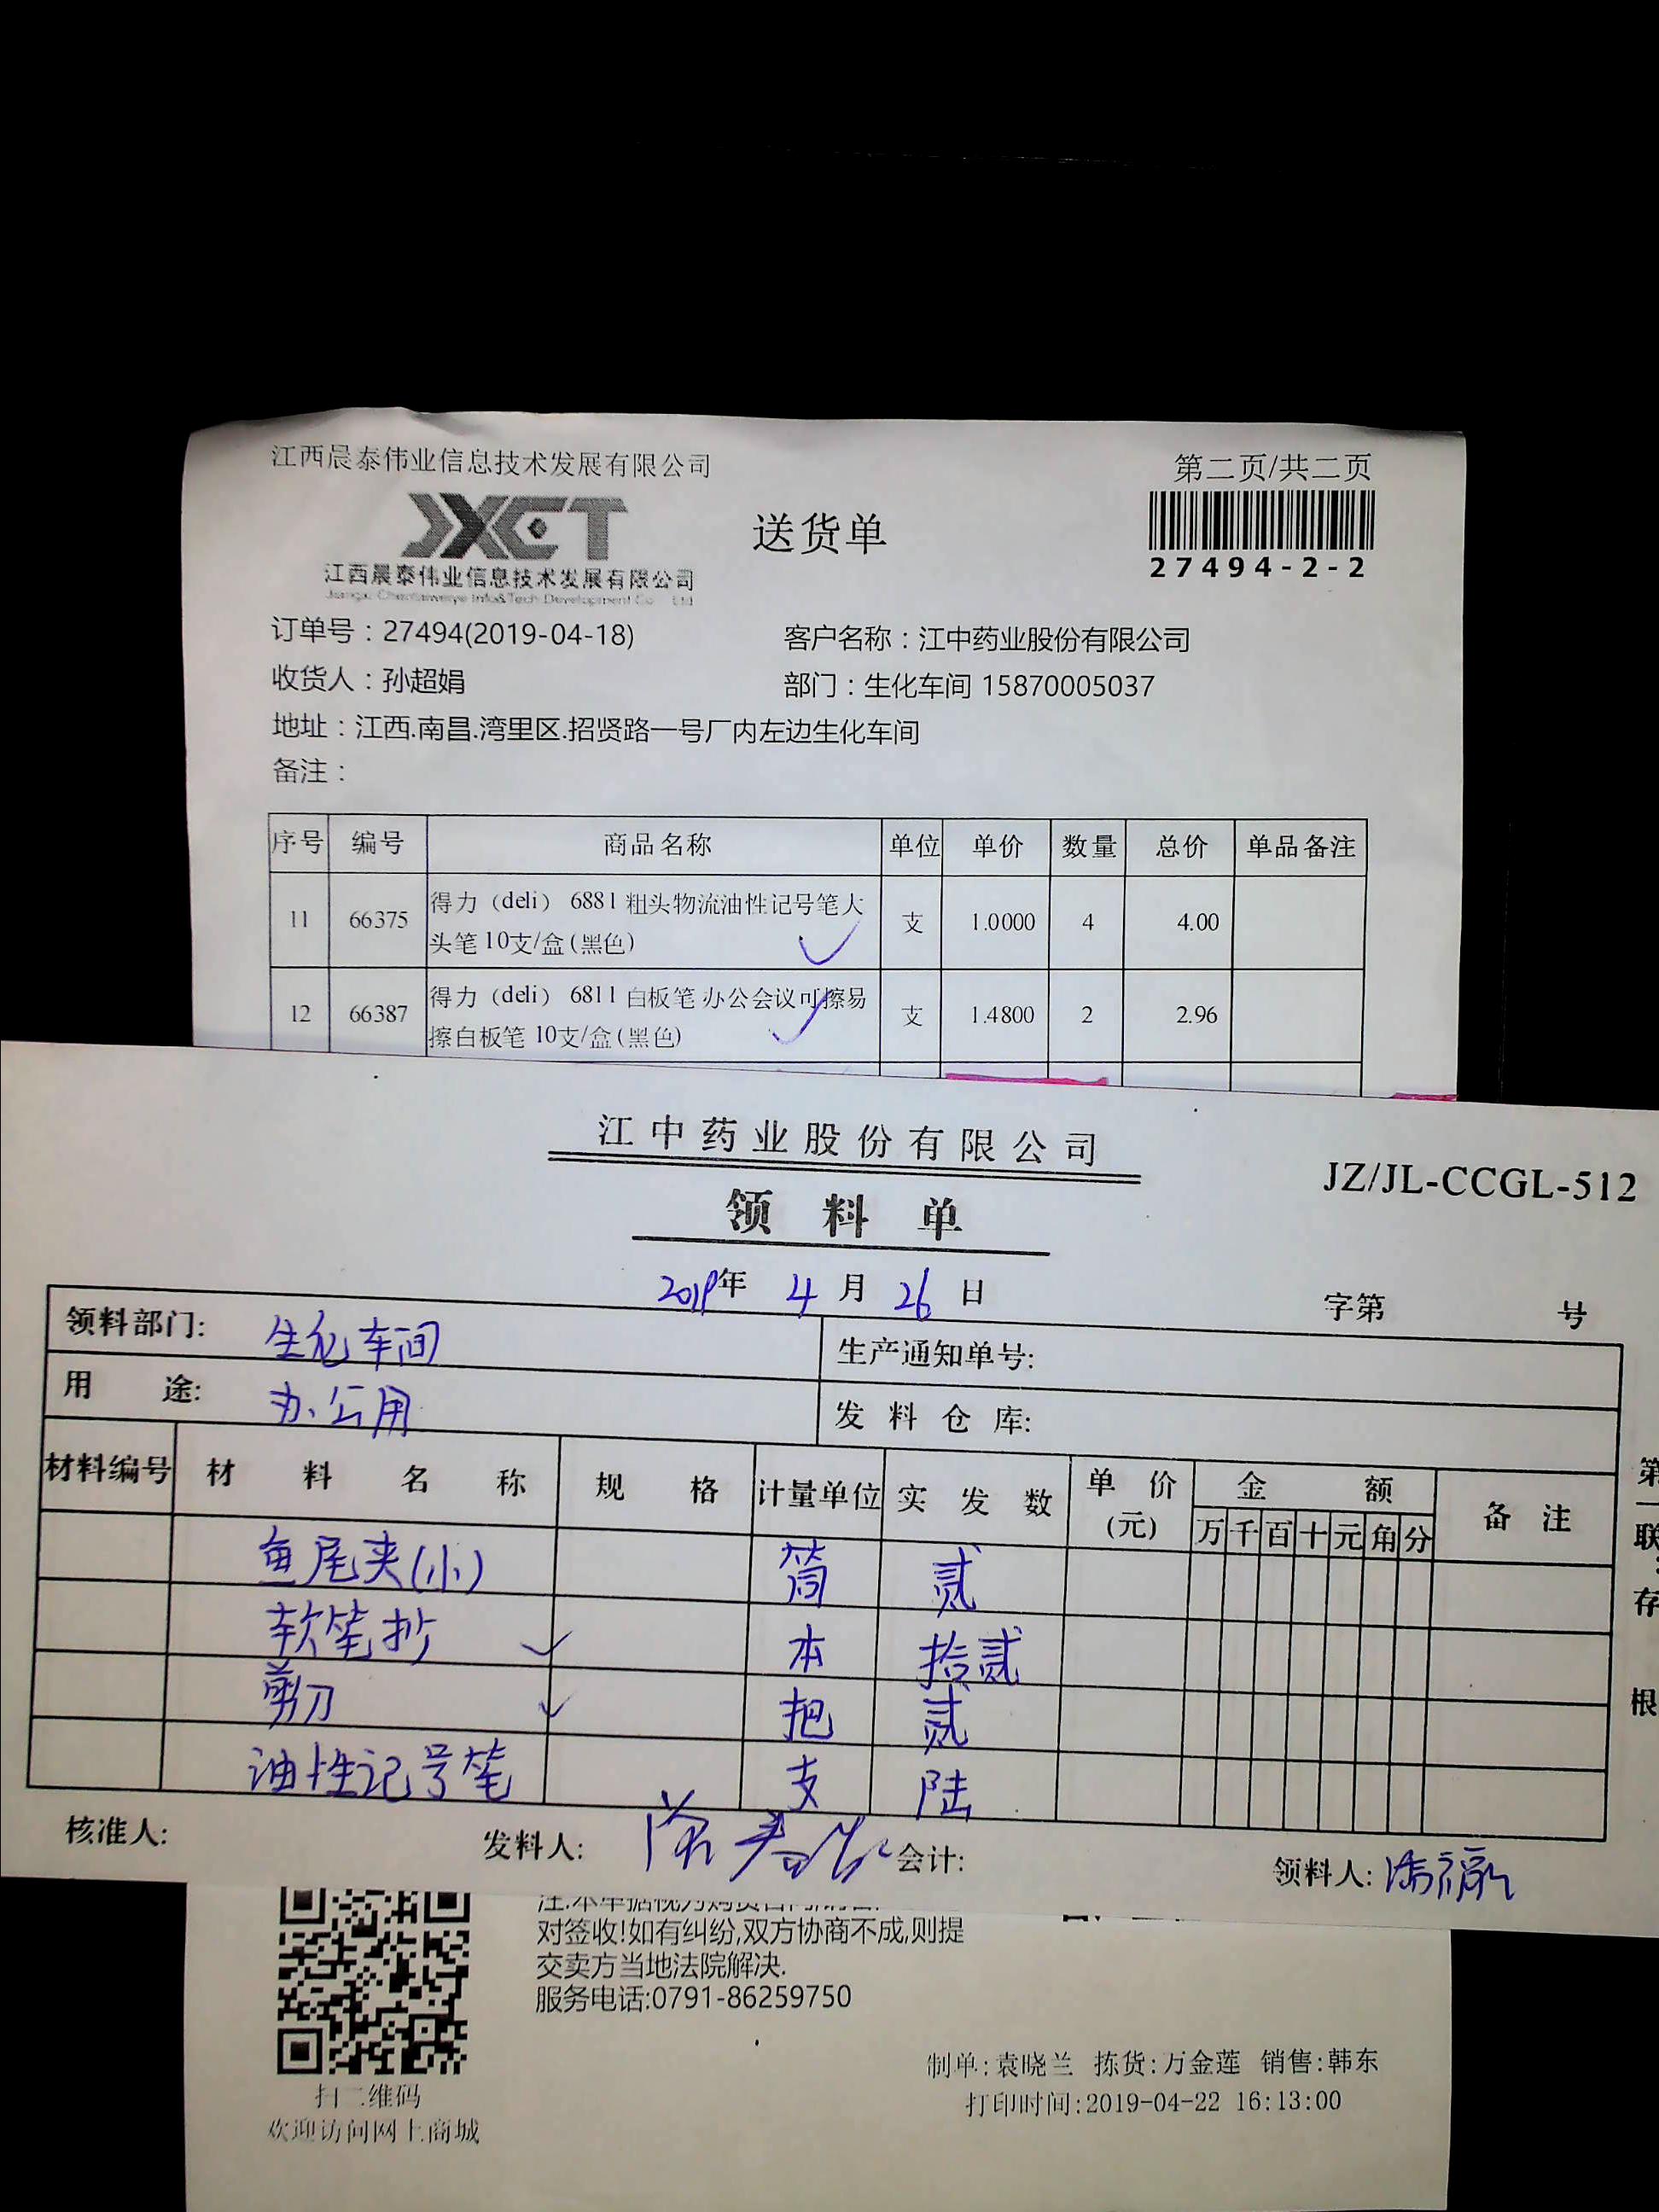 江西晨泰伟业信息技术发展有限公司
第二页/共二页
JXCT
送货单
江西晨泰伟业信息技术发展有限公司
27494-2-2
订单号：27494(2019-04-18)
客户名称：江中药业股份有限公司
收货人：孙超娟
部门：生化车间 15870005037
地址：江西.南昌.湾里区.招贤路一号厂内左边生化车间
备注：
序号 编号 商品名称 单位 单价 数量 总价 单品备注
11 66375 得力（deli） 6881 粗头物流油性记号笔大 支 1.0000 4 4.00
头笔 10支/盒(黑色)
12 66387 得力（deli） 6811 白板笔 办公会议可擦易 支 1.4800 2 2.96
擦白板笔 10支/盒(黑色)
江中药业股份有限公司
JZ/JL-CCGL-512
领料单
2019年 4月 26日
字第 号
领料部门: 生化车间 生产通知单号:
用途: 办公用 发料仓库:
材料编号 材料名称 规格 计量单位 实发数 单价 金额 备注
(元) 万 千 百 十 元 角 分
鱼尾夹(小) 筒 贰
软笔抄 本 拾贰
剪刀 把 贰
油性记号笔 支 陆
第一联:存根
核准人: 发料人: 会计: 领料人:
对签收!如有纠纷,双方协商不成,则提
交卖方当地法院解决.
服务电话:0791-86259750
制单:袁晓兰 拣货:万金莲 销售:韩东
扫二维码
打印时间:2019-04-22 16:13:00
欢迎访问网上商城